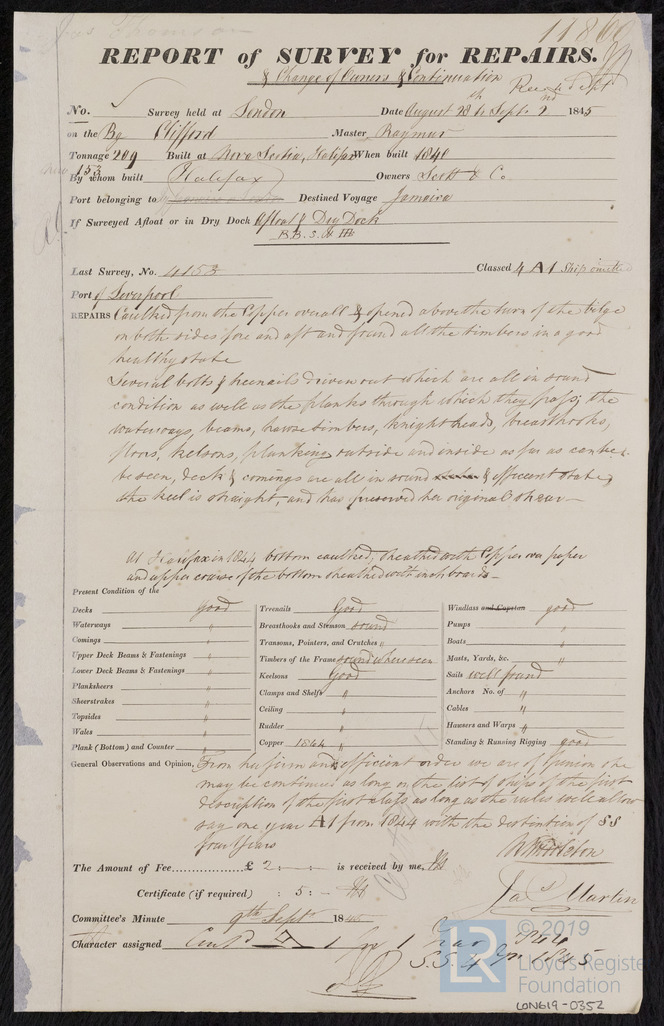 11869
REPORT of SURVEY for REPAIRS.
& Change of Owners & Continuation
Recd Sept
No. Survey held at London Date August 28 to Sept. 2nd 1845
on the Bg Clifford Master Raymur
Tonnage 209 Built at Nova Scotia, Halifax When built 1840
153
By whom built (Halifax) Owners Scott & Co.
Port belonging to Destined Voyage Jamaica
If Surveyed Afloat or in Dry Dock Afloat & Dry Dock
B.B.S.
Last Survey, No. 4153 Classed 4 A1 Ship omitted
Port of Liverpool
REPAIRS Caulked from the Copper overall & opened above the turn of the bilge
on both sides fore and aft and found all the timbers in a good
healthy state
Several bolts & treenails driven out which are all in sound
condition as well as the planks through which they pass; the
waterways, beams, hawse timbers, knight heads, breasthooks,
floors, kelsons, planking outside and inside as far as can be
be seen, deck & comings are all in sound & efficient state,
the keel is straight, and has preserved her original shear—
At Halifax in 1844 bottom caulked, sheathed with Copper over paper
and upper course of the bottom sheathed with inch boards—
Present Condition of the
Decks good Treenails Good Windlass and Capstan good
Waterways " Breasthooks and Stemson sound Pumps "
Comings " Transoms, Pointers, and Crutches " Boats "
Upper Deck Beams & Fastenings " Timbers of the Frame sound where seen Masts, Yards, &c. "
Lower Deck Beams & Fastenings " Keelsons Good Sails well found
Planksheers " Clamps and Shelfs " Anchors No. of "
Sheerstrakes " Ceiling " Cables "
Topsides " Rudder " Hawsers and Warps "
Wales " Copper 1844 " Standing & Running Rigging good
Plank (Bottom) and Counter "
General Observations and Opinion, From her firm and efficient order we are of opinion she
may be continued as long on the list of ships of the first
description of the first class as long as the rules will allow
say one year A1 from 1844 with the distinction of SS
four years
The Amount of Fee £ 2 is received by me,
Certificate (if required) : 5 : –
Jas Martin
Committee's Minute 9th Sept 1845
Character assigned Contd A 1 for 1 Year 1844
S.S. 4 Yrs 1845
© 2019
LR
Lloyd's Register
Foundation
LON619-0352